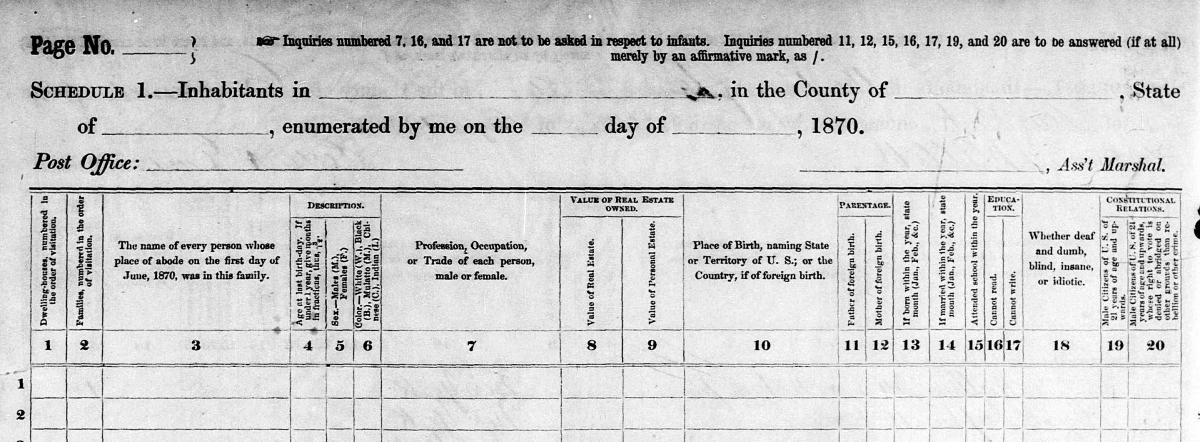 Page No.
☞ Inquiries numbered 7, 16, and 17 are not to be asked in respect to infants. Inquiries numbered 11, 12, 15, 16, 17, 19, and 20 are to be answered (if at all)
merely by an affirmative mark, as /.
SCHEDULE 1.—Inhabitants in , in the County of , State
of , enumerated by me on the day of , 1870.
Post Office: , Ass't Marshal.
Dwelling-houses, numbered in
the order of visitation.
Families, numbered in the order
of visitation.
The name of every person whose
place of abode on the first day of
June, 1870, was in this family.
DESCRIPTION.
Age at last birth-day. If
under 1 year, give months
in fractions, thus,
Sex.—Males (M.),
Females (F.)
Color.—White (W.), Black
(B.), Mulatto (M.), Chi-
nese (C.), Indian (I.)
Profession, Occupation,
or Trade of each person,
male or female.
VALUE OF REAL ESTATE
OWNED.
Value of Real Estate.
Value of Personal Estate.
Place of Birth, naming State
or Territory of U. S.; or the
Country, if of foreign birth.
PARENTAGE.
Father of foreign birth.
Mother of foreign birth.
If born within the year, state
month (Jan., Feb., &c.)
If married within the year, state
month (Jan., Feb., &c.)
Attended school within the year.
EDUCA-
TION.
Cannot read.
Cannot write.
Whether deaf
and dumb,
blind, insane,
or idiotic.
CONSTITUTIONAL
RELATIONS.
Male Citizens of U. S. of
21 years of age and up-
wards.
Male Citizens of U. S. of 21
years of age and upwards,
whose right to vote is
denied or abridged on
other grounds than re-
bellion or other crime.
1 2 3 4 5 6 7 8 9 10 11 12 13 14 15 16 17 18 19 20
1
2